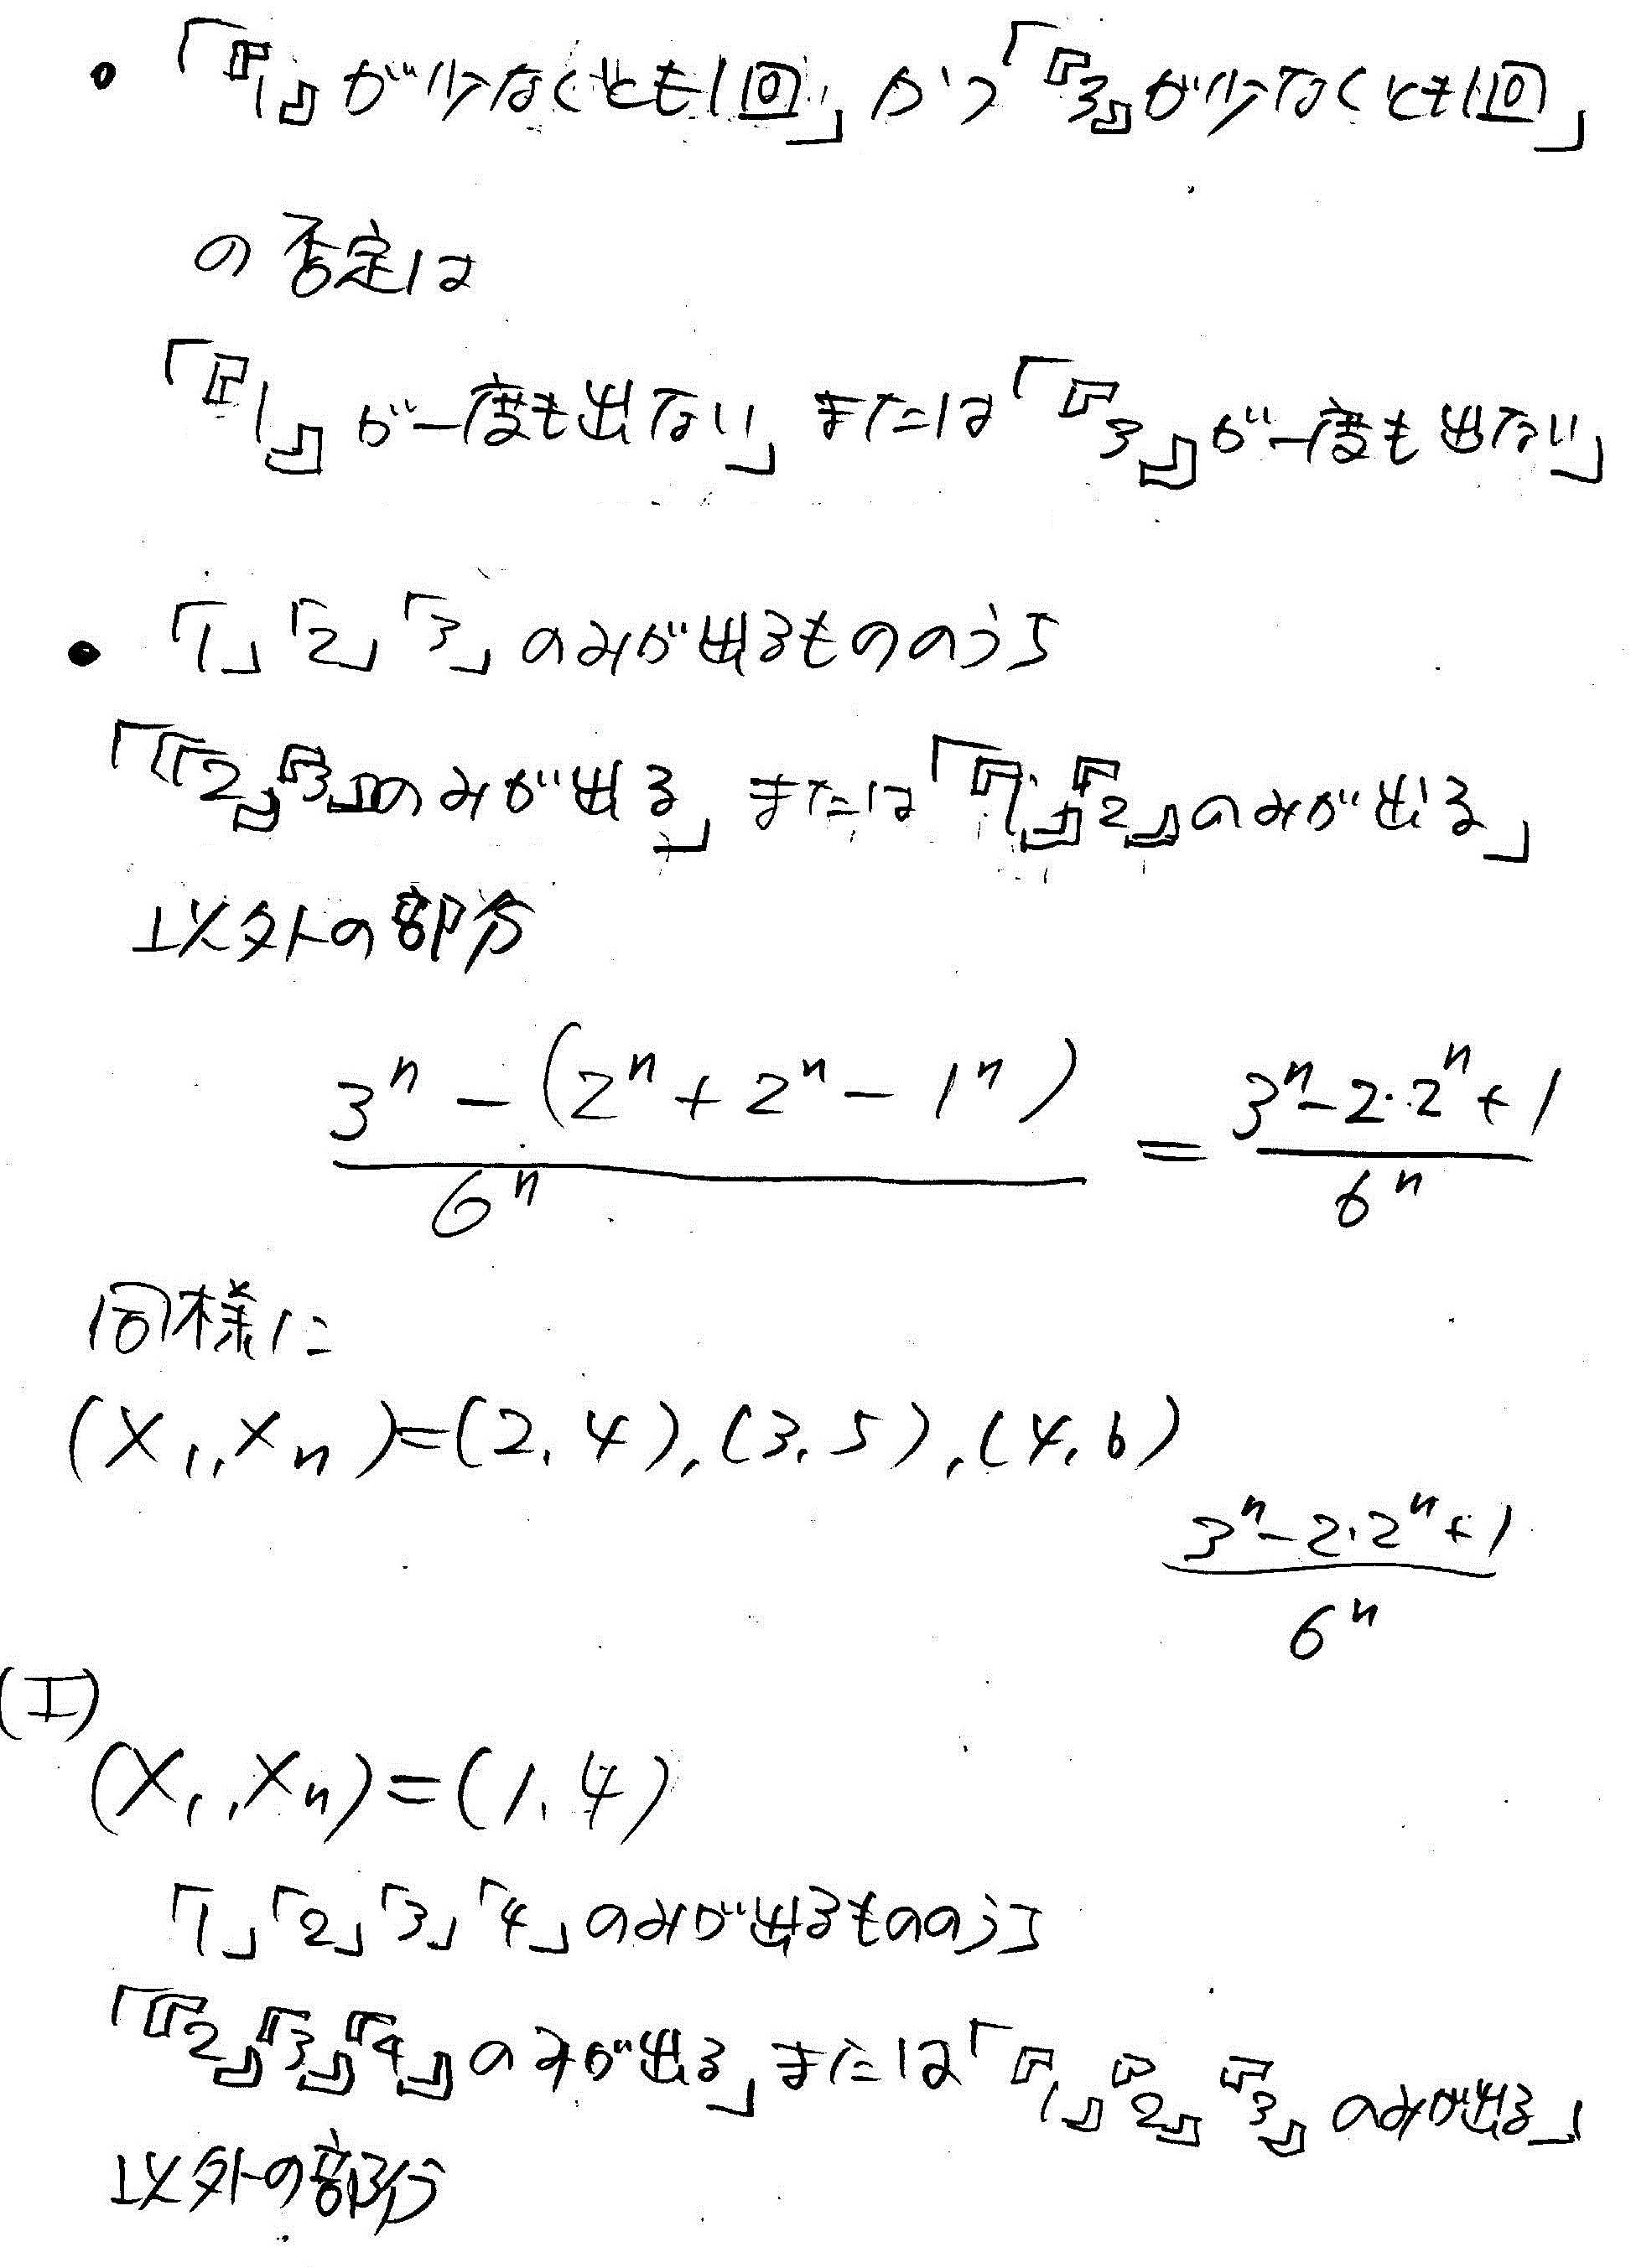 ・「『1』が少なくとも1回」かつ「『3』が少なくとも1回」
の否定は
「『1』が一度も出ない」または「『3』が一度も出ない」
・「1」「2」「3」のみが出るもののうち
「『2』『3』のみが出る」または「『1』『2』のみが出る」
以外の部分
\frac{3^n-(2^n+2^n-1^n)}{6^n} = \frac{3^n-2・2^n+1}{6^n}
同様に
(X_1,X_n)=(2,4),(3,5),(4,6)
\frac{3^n-2・2^n+1}{6^n}
(エ)
(X_1,X_n)=(1,4)
「1」「2」「3」「4」のみが出るもののうち
「『2』『3』『4』のみが出る」または「『1』『2』『3』のみが出る」
以外の部分